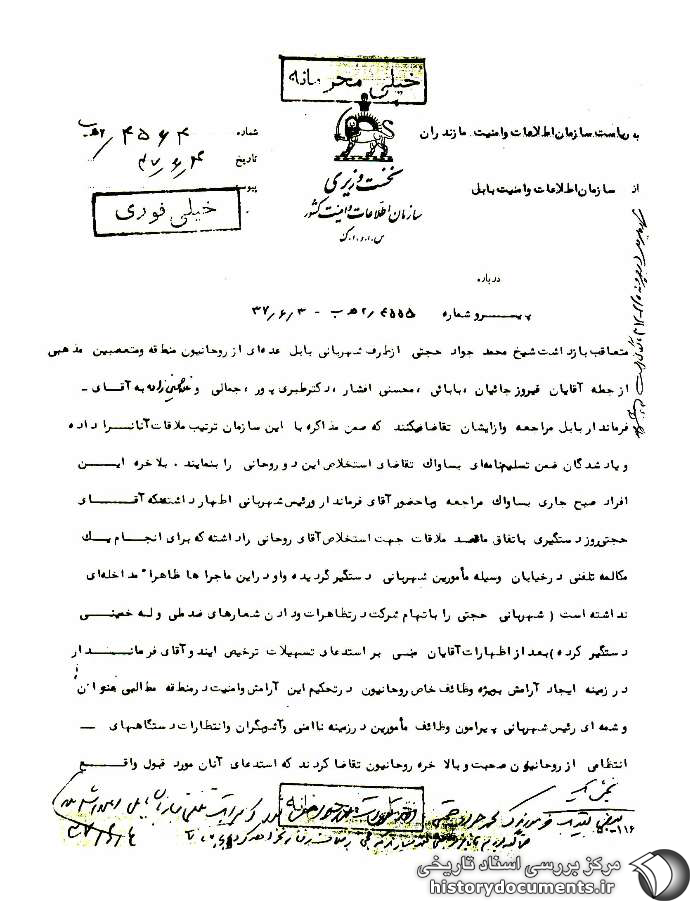 خیلی محرمانه
به ریاست سازمان اطلاعات وامنیت مازندران
شماره ۴۵۶۴/۲هـ ب
تاریخ ۳۷/۶/۴
نخست وزیری
از سازمان اطلاعات وامنیت بابل
پیوست
سازمان اطلاعات وامنیت کشور
خیلی فوری
س.ا.و.ا.ک
درباره
پیرو شماره ۴۵۵۵/۲هـ ب - ۳۷/۶/۳
متعاقب بازداشت شیخ محمد جواد حجتی ازطرف شهربانی بابل عده‌ای از روحانیون منطقه ومتعصبین مذهبی
ازجمله آقایان فیروزجائیان ،بابائی ،محسنی افشار ،دکترطبری پور ،جمالی و به آقای -
فرماندار بابل مراجعه وازایشان تقاضامیکنند که ضمن مذاکره با این سازمان ترتیب ملاقات آنانرا داده
ویادشدگان ضمن تسلیم‌نامه‌ای بساواک تقاضای استخلاص این دو روحانی را بنمایند . بلاخره ایـن
افراد صبح جاری بساواک مراجعه وباحضور آقای فرماندار ورئیس شهربانی اظهارداشتندکه آقـای
حجتی‌روز دستگیری باتفاق ماقصد ملاقات جهت استخلاص‌آقای روحانی راداشته که برای انجام یک
مکالمه تلفنی درخیابان وسیله مأمورین شهربانی دستگیر گردیده واو دراین ماجرا ها ظاهرا" مداخله‌ای
نداشته است ( شهربانی حجتی را باتهام شرکت درتظاهرات ودادن شعارهای ضدملی و له خمینـی
دستگیر کرده )بعد از اظهارات آقایان مبنی بر استدعای تسهیلات ترخیص ایند وآقای فرمانـدار
در زمینه ایجاد آرامش بویژه وظائف خاص روحانیون درتحکیم این آرامش وامنیت درمنطقه مطالبی عنوان
وشمه ای رئیس شهربانی پیرامون وظائف مأمورین درزمینه ناامنی وآشوبگران وانتظارات دستگاههای -
انتظامی از روحانیون صحبت و بالاخره روحانیون تقاضا کردند که استدعای آنان مورد قبول واقـع
خیلی محرمانه
۱۱۶
۳۷/۶/۴
مرکز بررسی اسناد تاریخی
historydocuments.ir